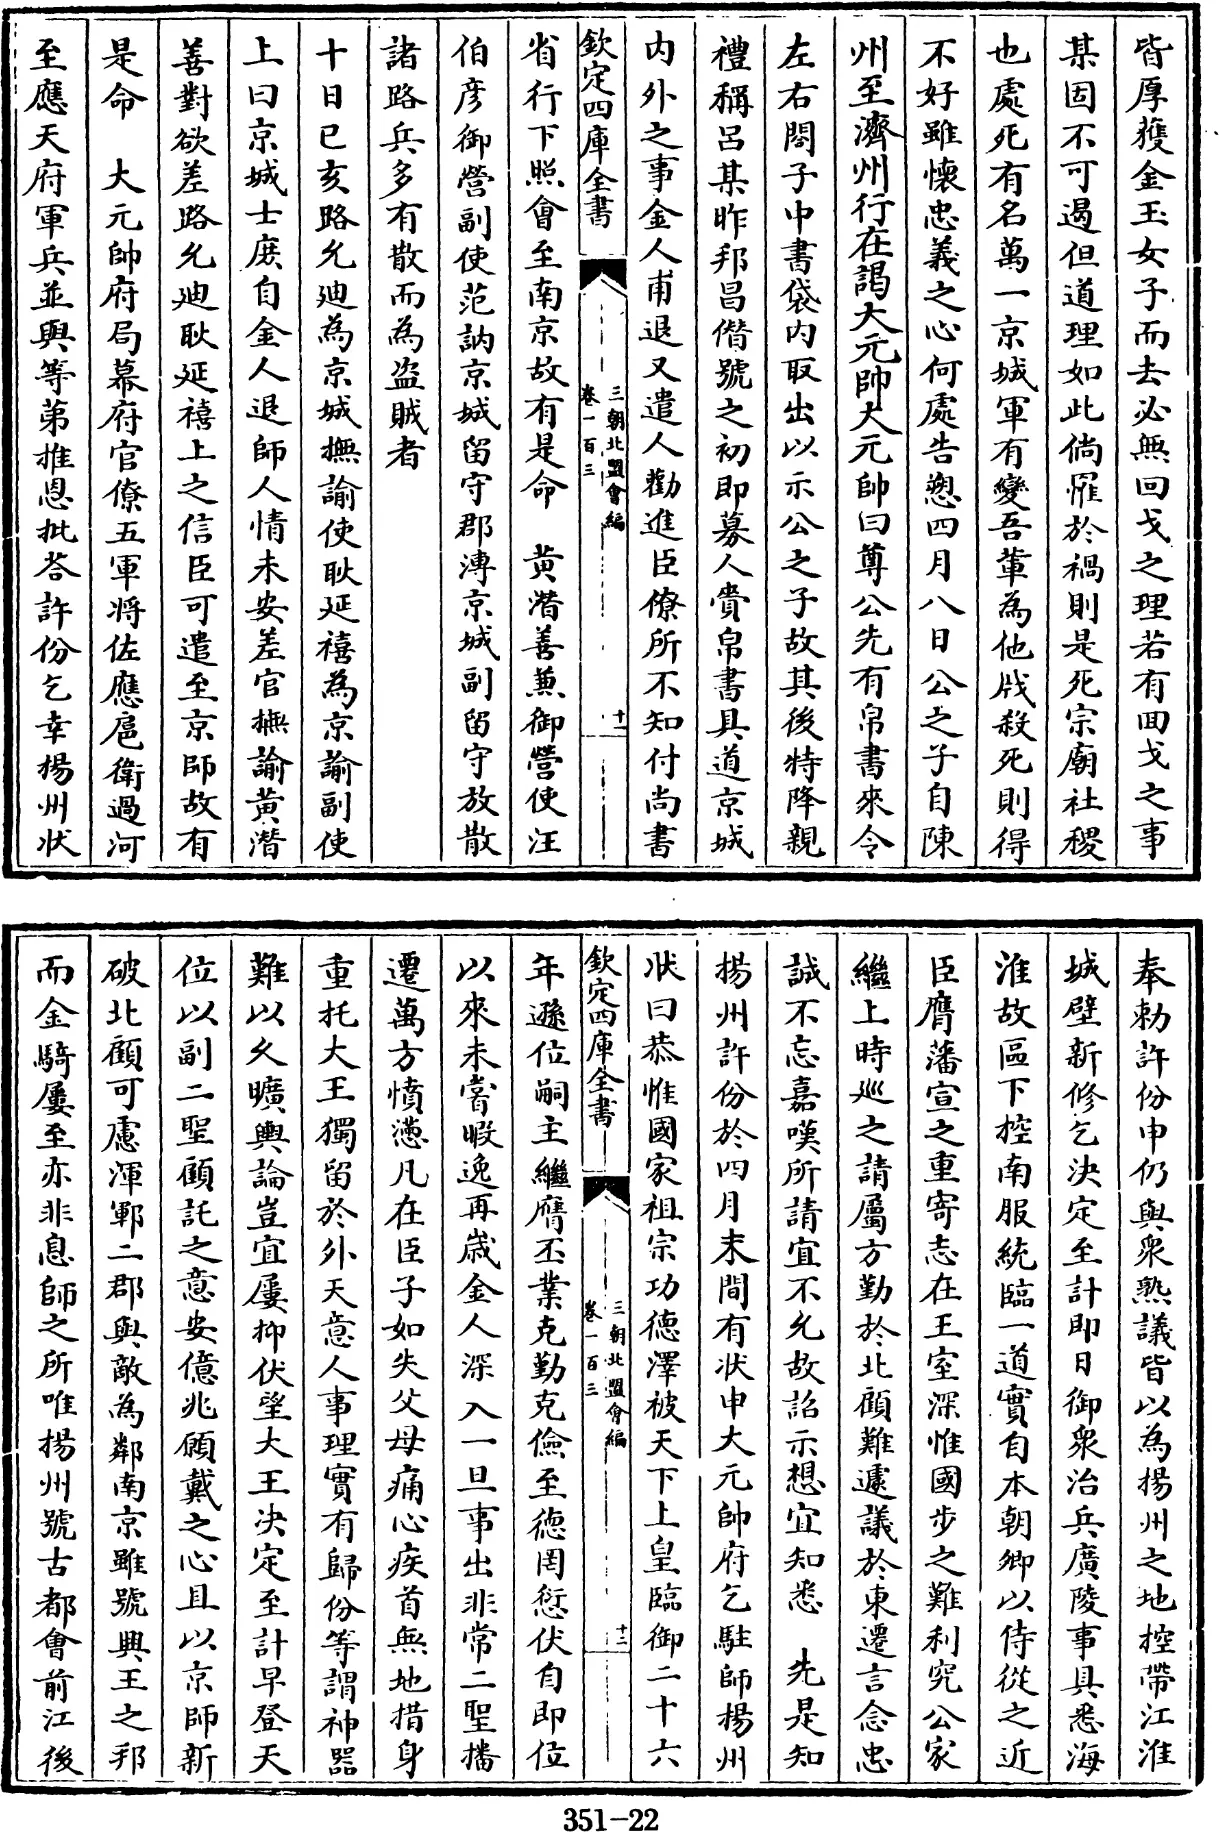 皆厚獲金玉女子而去必無回戈之理若有回戈之事
某固不可遏但道理如此倘罹於禍則是死宗廟社稷
也處死有名萬一京城軍有變吾輩為他戕殺死則得
不好雖懷忠義之心何處告愬四月八日公之子自陳
州至濟州行在謁大元帥大元帥曰尊公先有帛書來令
左右閤子中書袋内取出以示公之子故其後特降親
禮稱呂某昨邦昌僭號之初即募人賫帛書具道京城
内外之事金人甫退又遣人勸進臣僚所不知付尚書
欽定四庫全書
三朝北盟會編
卷一百三
十一
省行下照會至南京故有是命 黄潛善兼御營使汪
伯彦御營副使范訥京城留守郡溥京城副留守放散
諸路兵多有散而為盗賊者
十日已亥路允廸為京城撫諭使耿延禧為京諭副使
上曰京城士庻自金人退師人情未安差官撫諭黄潛
善對欲差路允廸耿延禧上之信臣可遣至京師故有
是命 大元帥府局幕府官僚五軍将佐應扈衛過河
至應天府軍兵並與等第推恩批荅許份乞幸揚州狀
奉勅許份申仍與衆熟議皆以為揚州之地控帶江淮
城壁新修乞決定至計即日御衆治兵廣陵事具悉海
淮故區下控南服統臨一道實自本朝卿以侍從之近
臣膺藩宣之重寄志在王室深惟國步之難利究公家
繼上時巡之請屬方勤於北顧難遽議於東遷言念忠
誠不忘嘉嘆所請宜不允故詔示想宜知悉 先是知
揚州許份於四月末間有狀申大元帥府乞駐師揚州
狀曰恭惟國家祖宗功德澤被天下上皇臨御二十六
欽定四庫全書
三朝北盟會編
卷一百三
十二
年遜位嗣主繼膺丕業克勤克儉至德罔愆伏自即位
以來未嘗暇逸再歲金人深入一旦事出非常二聖播
遷萬方憤懣凡在臣子如失父母痛心疾首無地措身
重托大王獨留於外天意人事理實有歸份等謂神器
難以久曠輿論豈宜屢抑伏望大王决定至計早登天
位以副二聖顧託之意安億兆願戴之心且以京師新
破北顧可慮渾鄆二郡與敵為鄰南京雖號興王之邦
而金騎屢至亦非息師之所唯揚州號古都會前江後
351-22